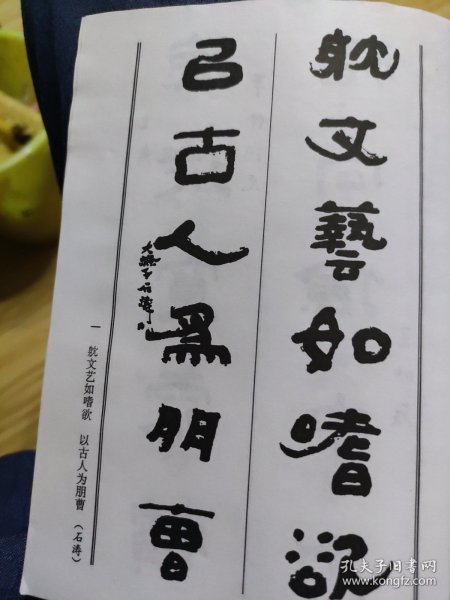 躭文藝如嗜欲
㠯古人為朋曹
大滌子石濤
一 躭文艺如嗜欲 以古人为朋曹 (石涛)
孔夫子旧书网
www.kongfz.com